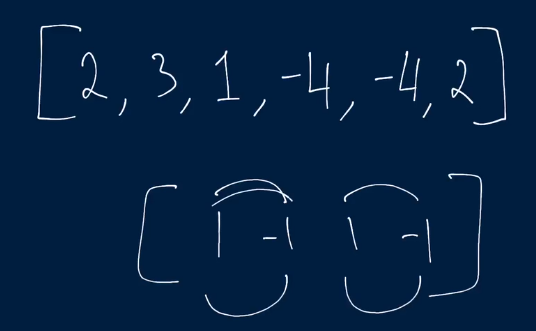 [2, 3, 1, -4, -4, 2]
[1 -1 1 -1]